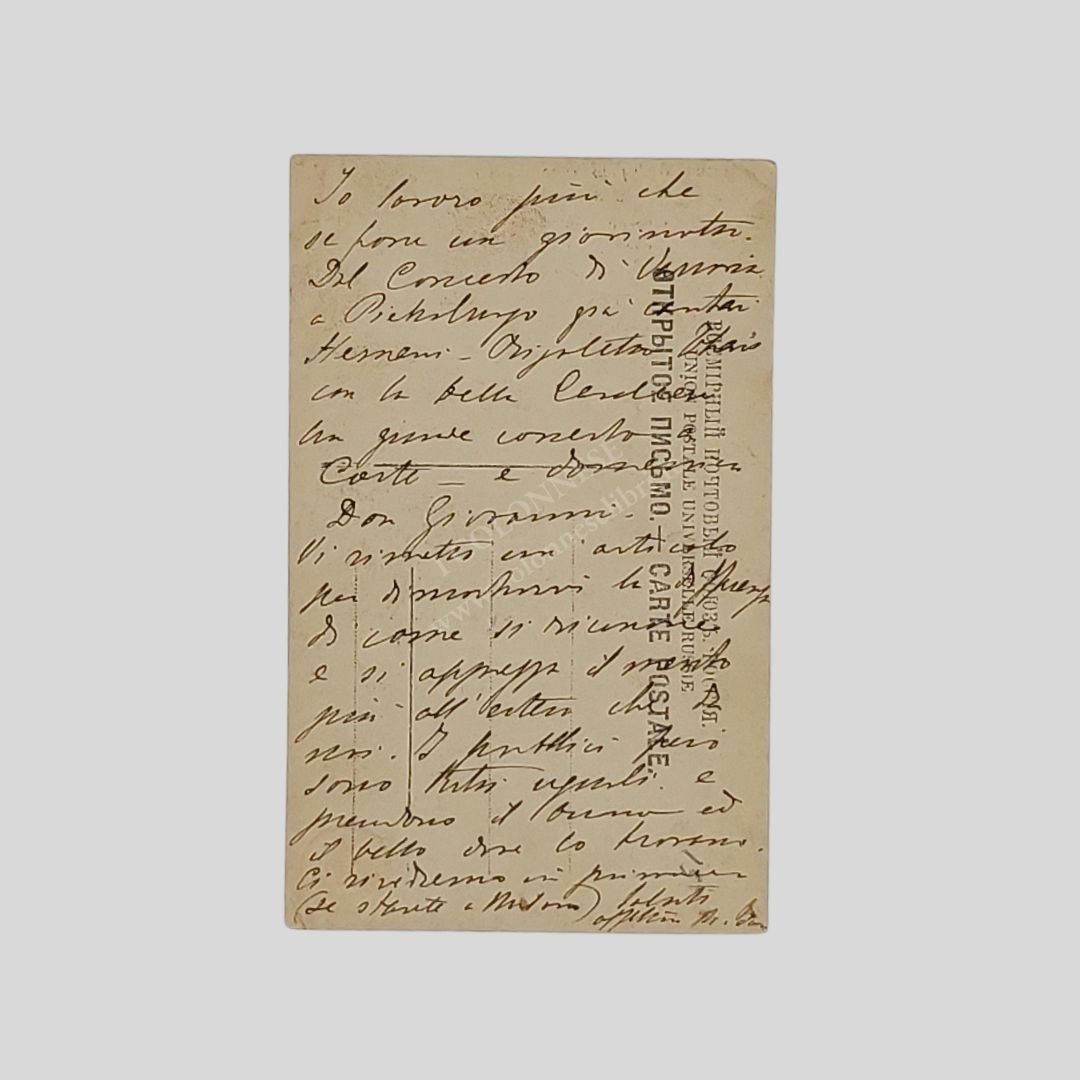 Io lavoro più che
se fossi un giovinotto.
Dal Concerto di
a Pietroburgo già cantai
Hernani - Rigoletto Thais
con la bella Cavalieri
un grande concerto a
Corte - e domenica
Don Giovanni.
Vi rimetto un articolo
per dimostrarvi la differenza
di come si riconosce
e si apprezza il merito
più all'estero che da
noi. I pubblici però
sono tutti uguali. e
prendono il buono ed
il bello dove lo trovano.
Ci rivedremo in primavera
(se starete a Milano) saluti
ОТКРЫТОЕ ПИСЬМО. — CARTE POSTALE.
UNION POSTALE UNIVERSELLE RUSSIE
ВСЕМІРНЫЙ ПОЧТОВЫЙ СОЮЗЪ. РОССІЯ.